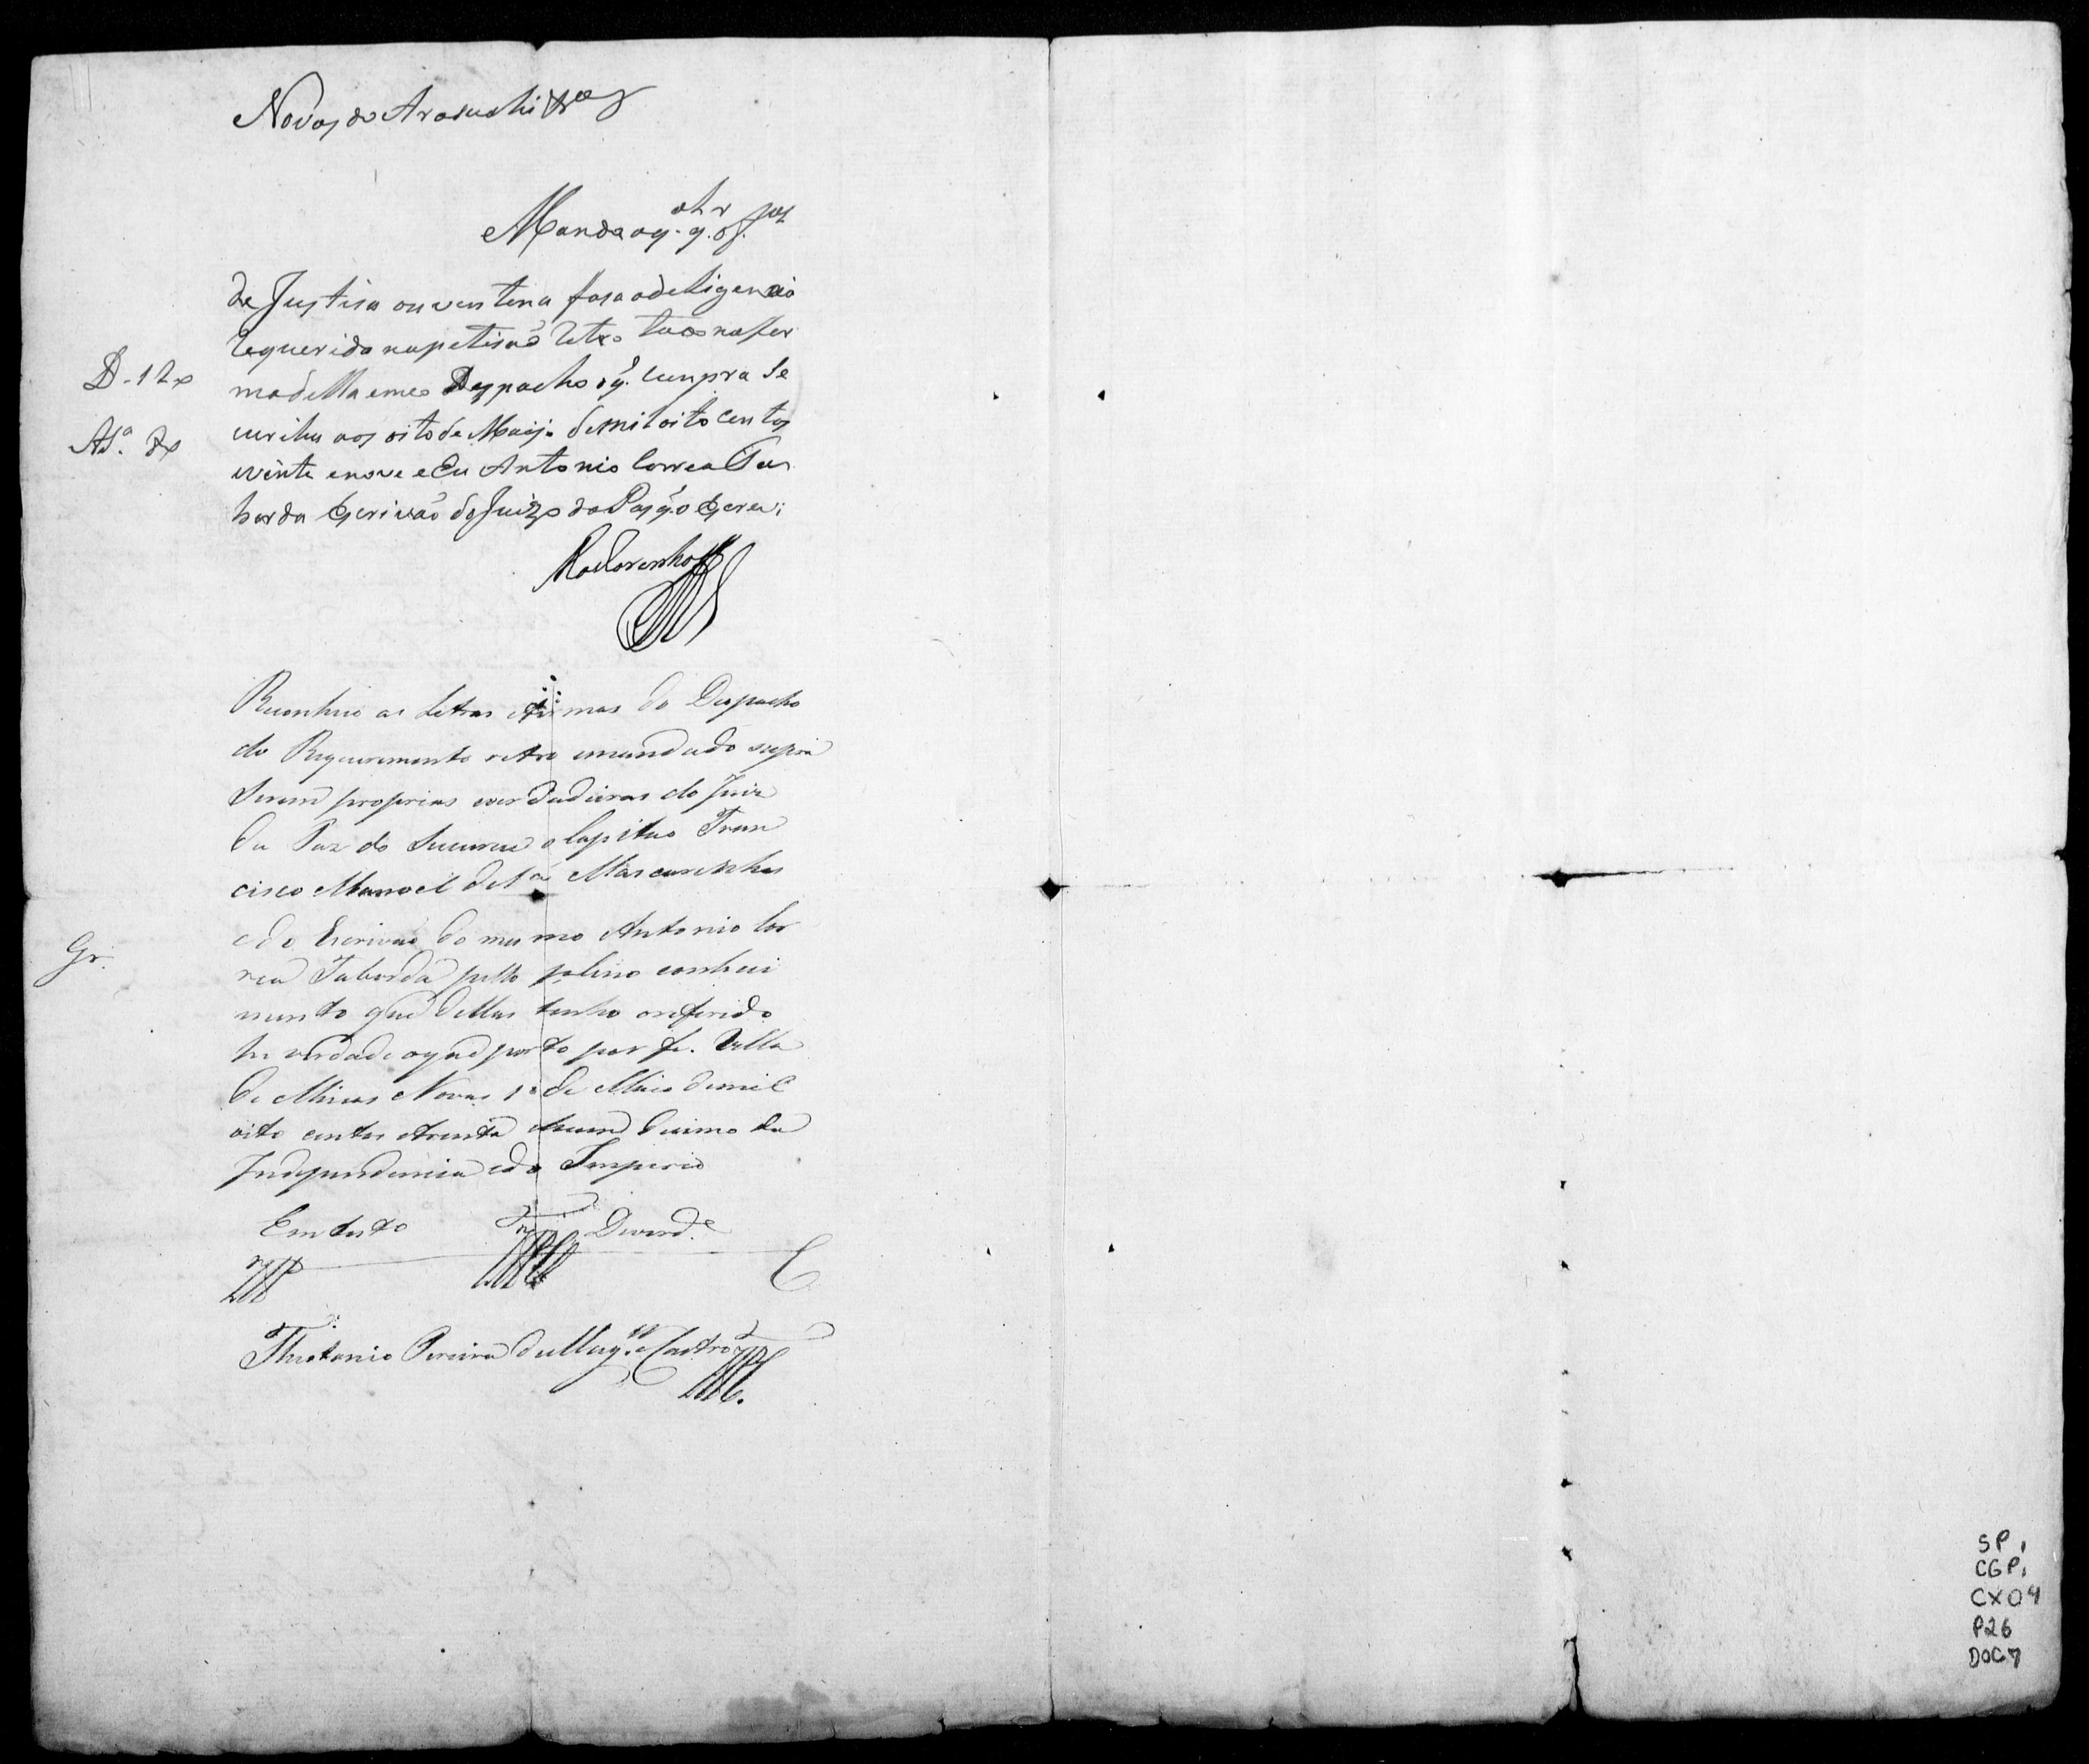 Novas do Arasuahi
Manda aq. q. of.
de Justisa ou ventena fasa adeligencia
Requerida napetisaõ Retro tudo nafor
madella emeo Despacho oq. cumpra Se
D. 120
curihu aos oito de Maijo demil oito centos
Asª.
vinte enove e Eu Antonio Correa Ta
borda Escrivaõ do Juizo da Pas q. o Escrevi
Mascarenhas
Reconheco as Letras efirmas do Despacho
do Requerimento retro emandado supra
Serem proprias everdadeiras do Juiz
da Paz do Sucuriu o Capitao Fran
cisco Manoel de Sá Mascarenhas
edo Escrivao do mesmo Antonio Cor
Gr.
rea Taborda pello pleno conheci
mento que dellas tenho oreferido
he verdade oque porto por fe. Villa
de Minas Novas 1º de Maio demil
oito centos etrinta decimo da
Independencia edo Imperio
Em testo de Verde
Theotonio Pereira de Mag.es e Castro
SP 1
CGP1
CX04
P26
DOC7